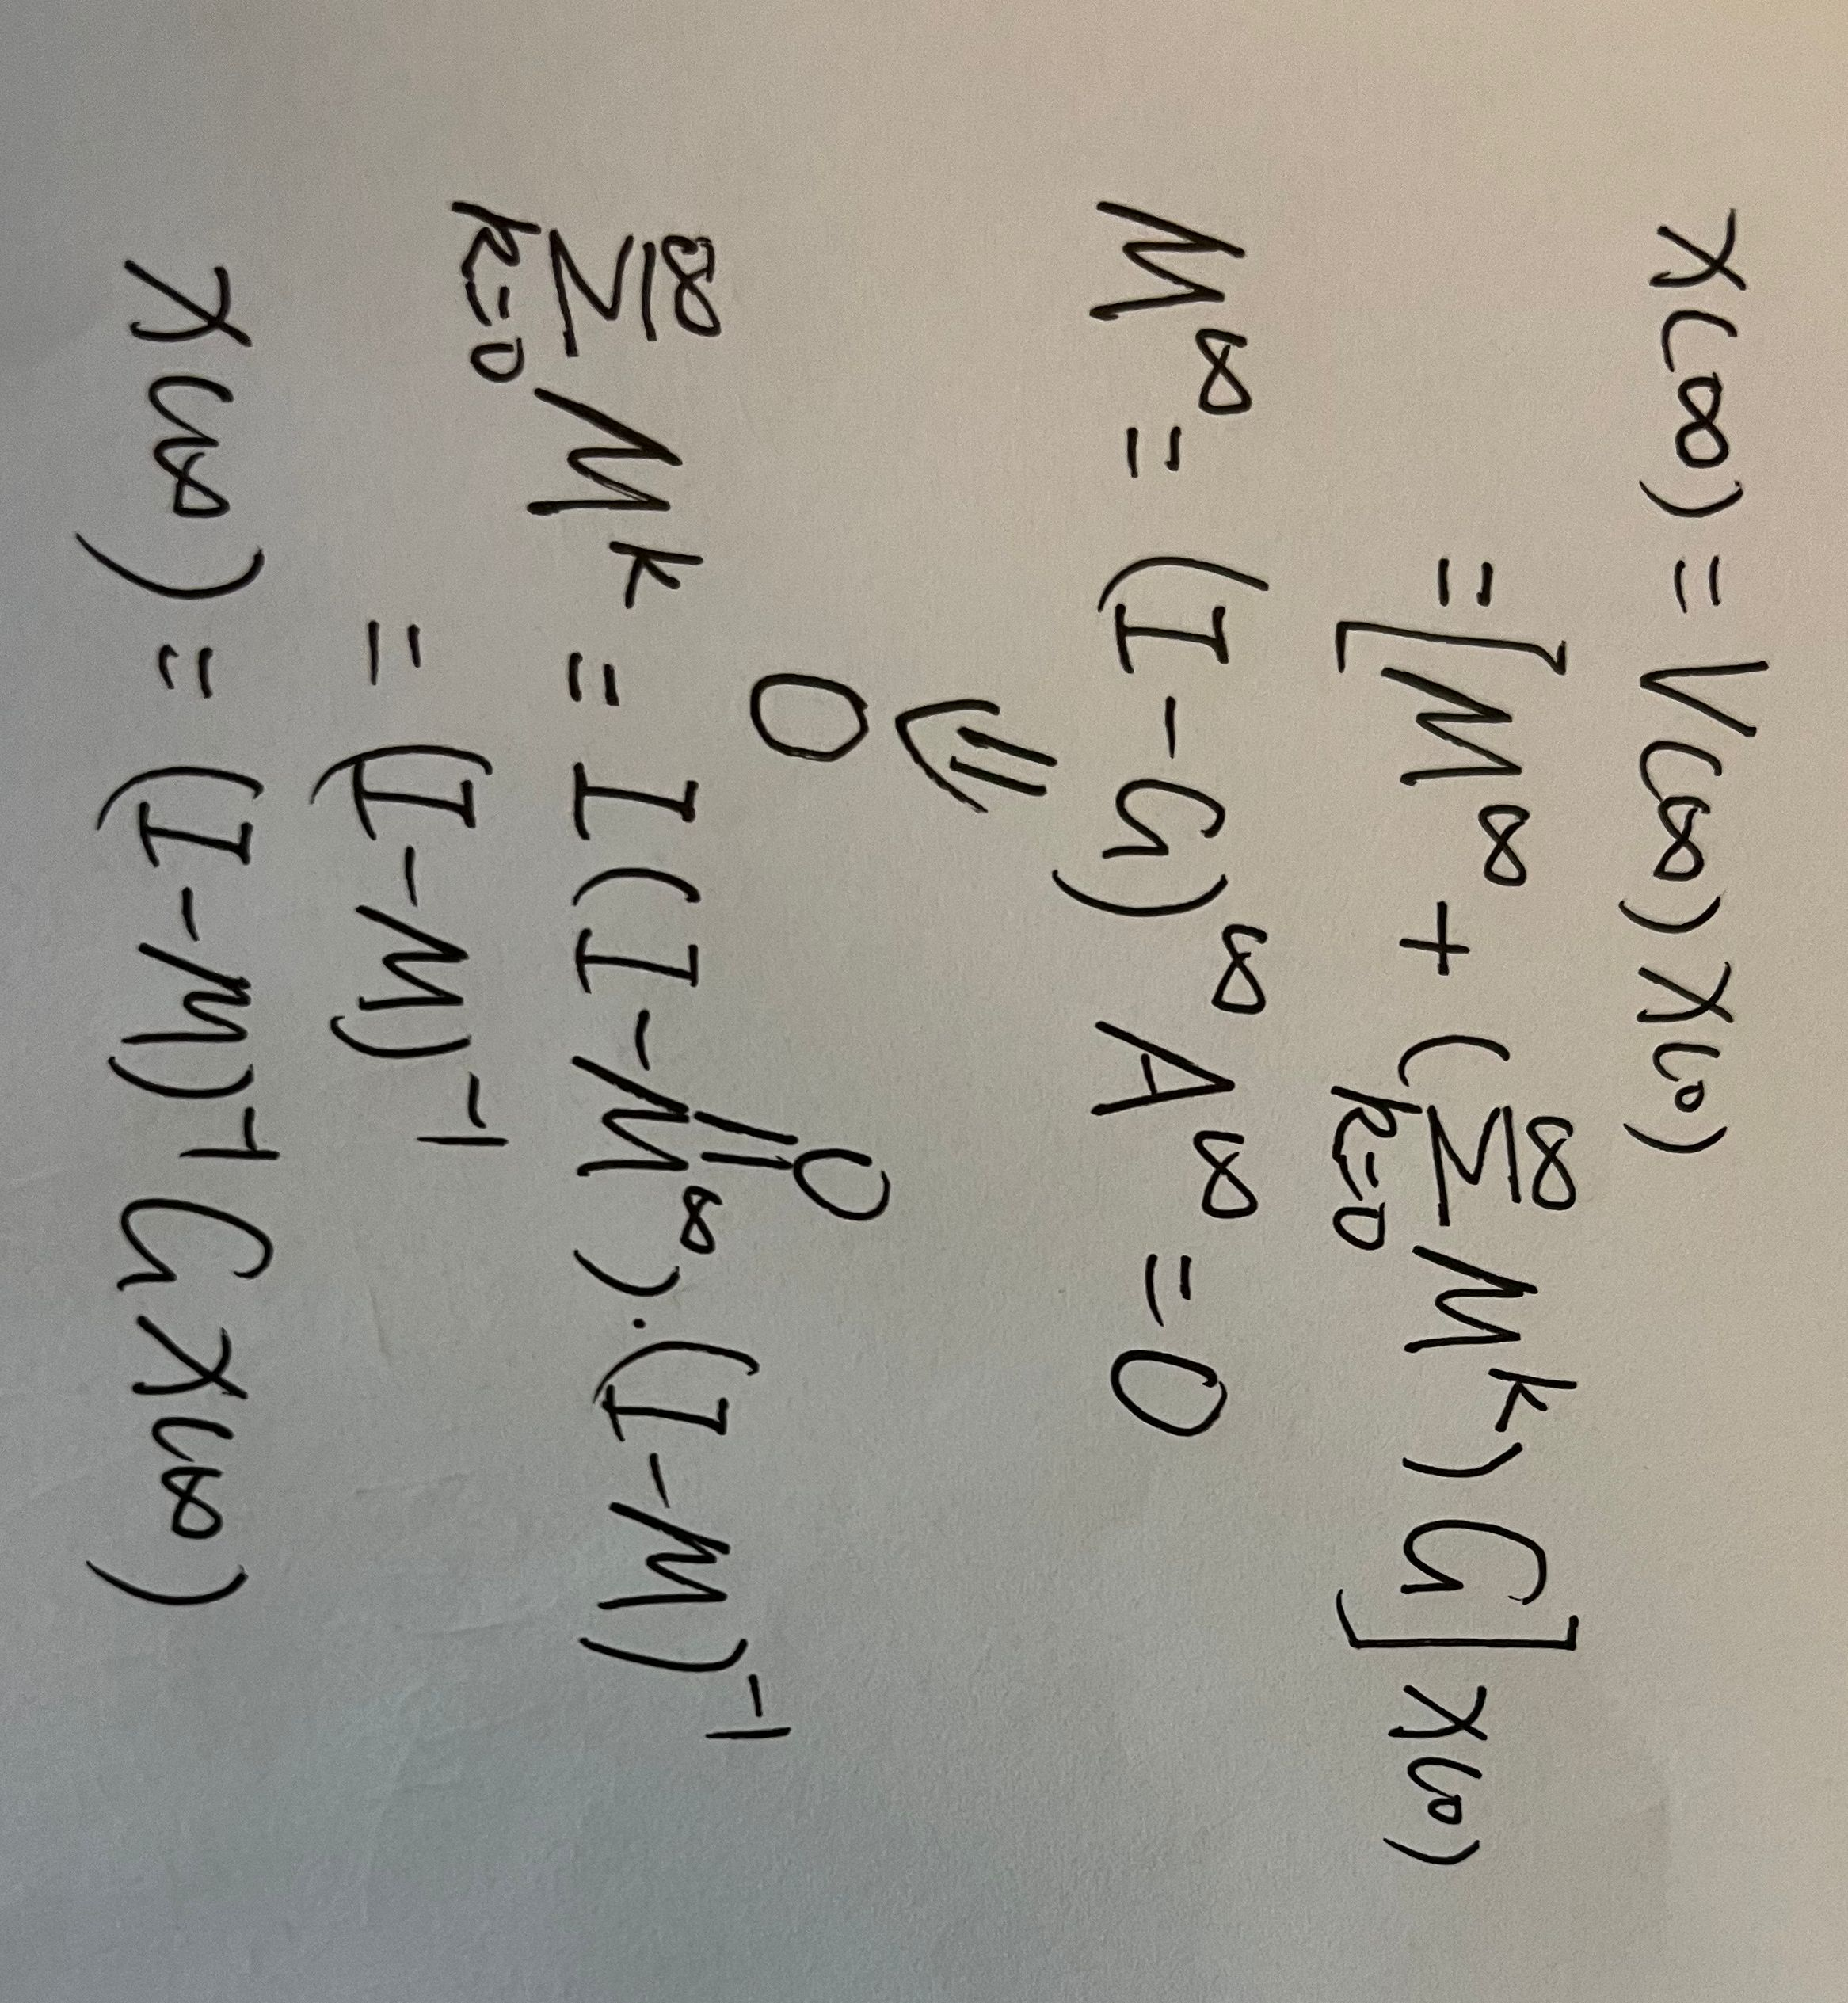 x(∞) = V(∞) x(0)
= [M^∞ + (∑_{k=0}^{∞} M^k) G] x(0)
M^∞ = (I - G)^∞ A^∞ = 0
⇓
0
∑_{k=0}^{∞} M^k = I (I - M^∞) · (I - M)^{-1}
= 0
= (I - M)^{-1}
x(∞) = (I - M)^{-1} G x(∞)